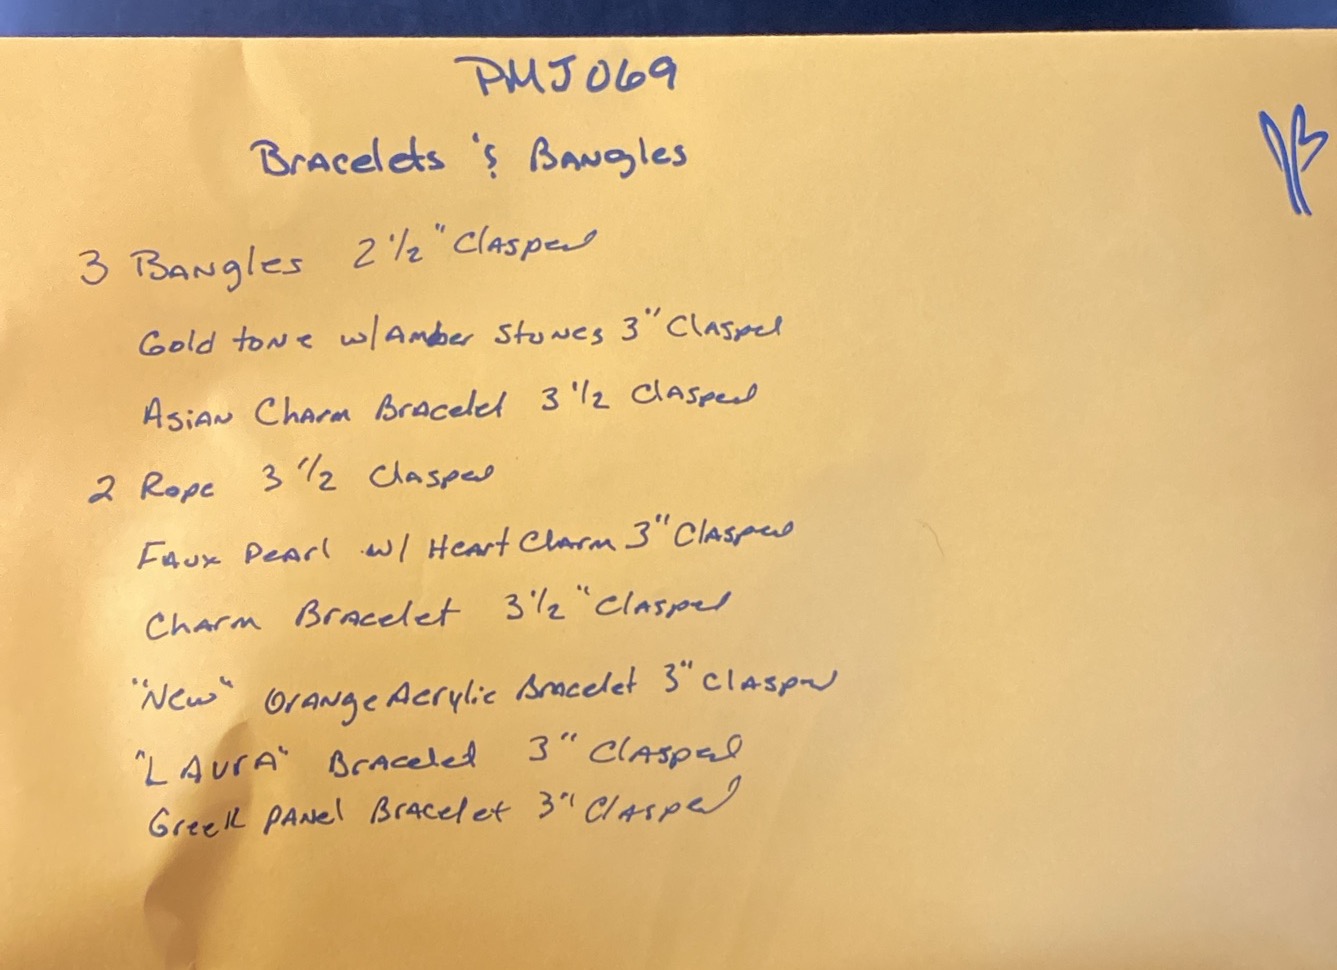 PMJ069
Bracelets & Bangles
3 Bangles 2 1/2" Clasped
Gold tone w/ Amber Stones 3" Clasped
Asian Charm Bracelet 3 1/2 Clasped
2 Rope 3 1/2 Clasped
Faux Pearl w/ Heart Charm 3" Clasped
Charm Bracelet 3 1/2" Clasped
"New" Orange Acrylic Bracelet 3" Clasped
"LAURA" Bracelet 3" Clasped
Greek Panel Bracelet 3" Clasped